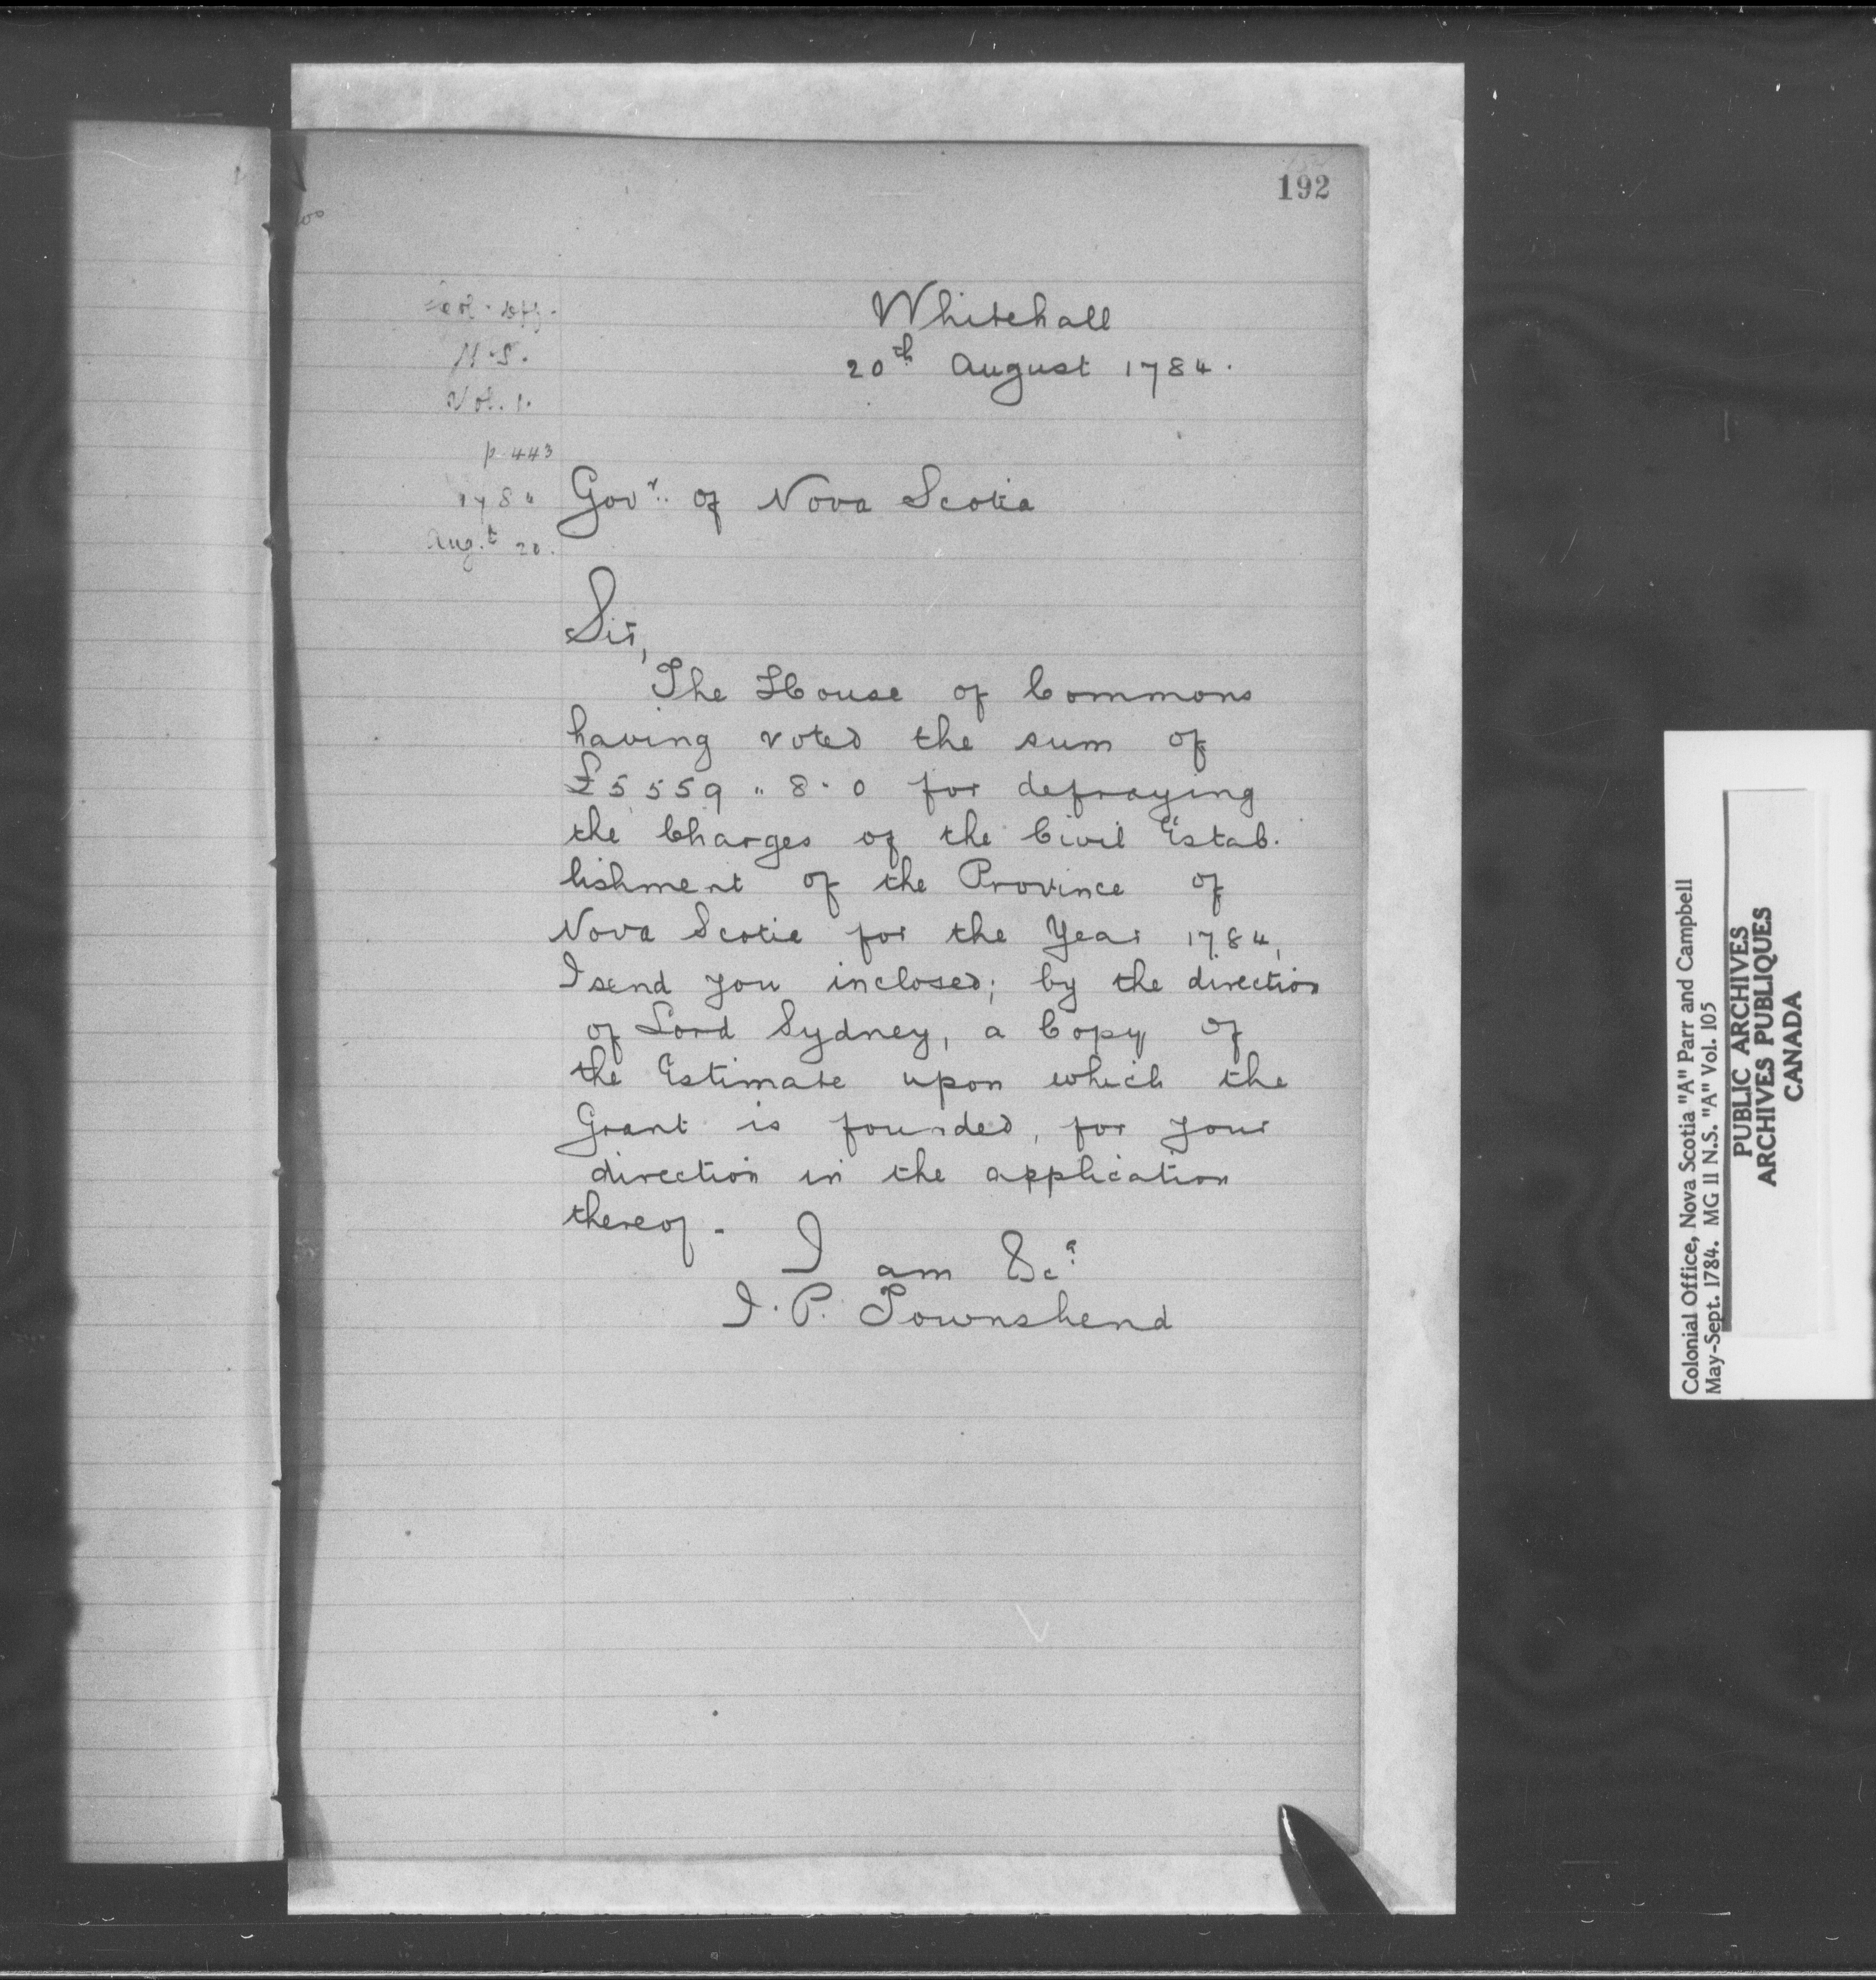 192
Whitehall
20th August 1784.
Col. Off.
N.S.
Vol. 1.
p. 443
1784
Aug.t 20.
Govr. of Nova Scotia
Sir,
The House of Commons
having voted the sum of
£5559 " 8 . 0 for defraying
the Charges of the Civil Estab.
lishment of the Province of
Nova Scotia for the Year 1784,
I send you inclosed; by the direction
of Lord Sydney, a Copy of
the Estimate upon which the
Grant is founded, for your
direction in the application
thereof.
I am &ca
I. P. Townshend
Colonial Office, Nova Scotia "A" Parr and Campbell
May-Sept. 1784. MG 11 N.S. "A" Vol. 105
PUBLIC ARCHIVES
ARCHIVES PUBLIQUES
CANADA